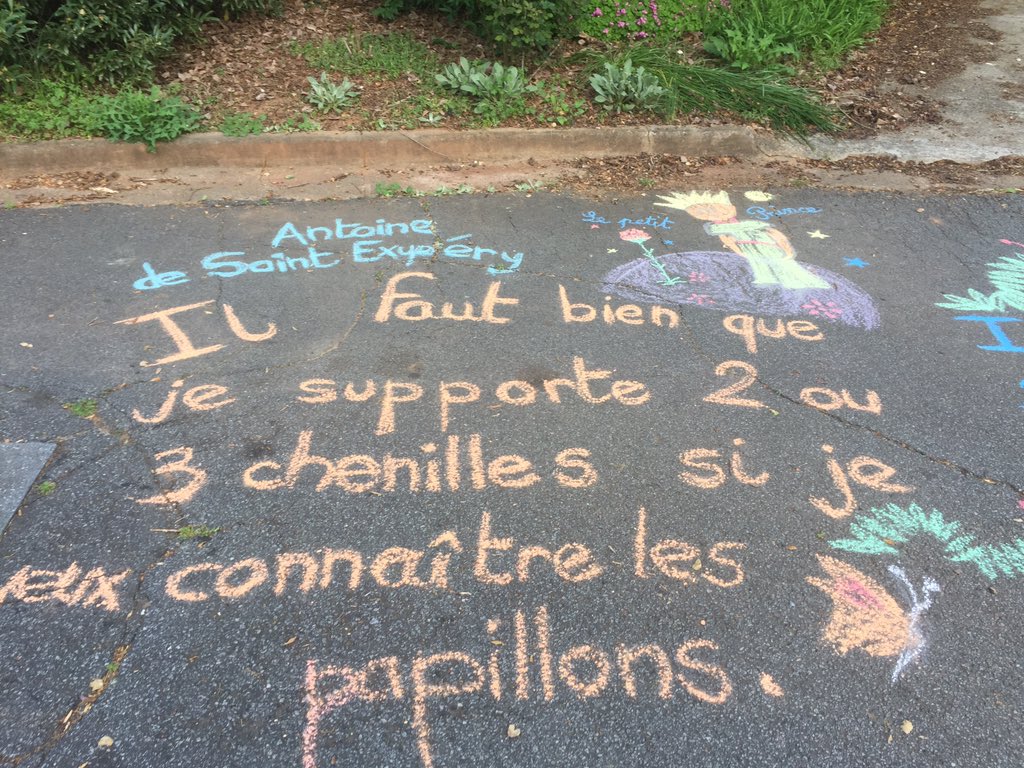 Antoine
de Saint Exupéry
Le petit Prince
Il faut bien que
je supporte 2 ou
3 chenilles si je
veux connaître les
papillons.